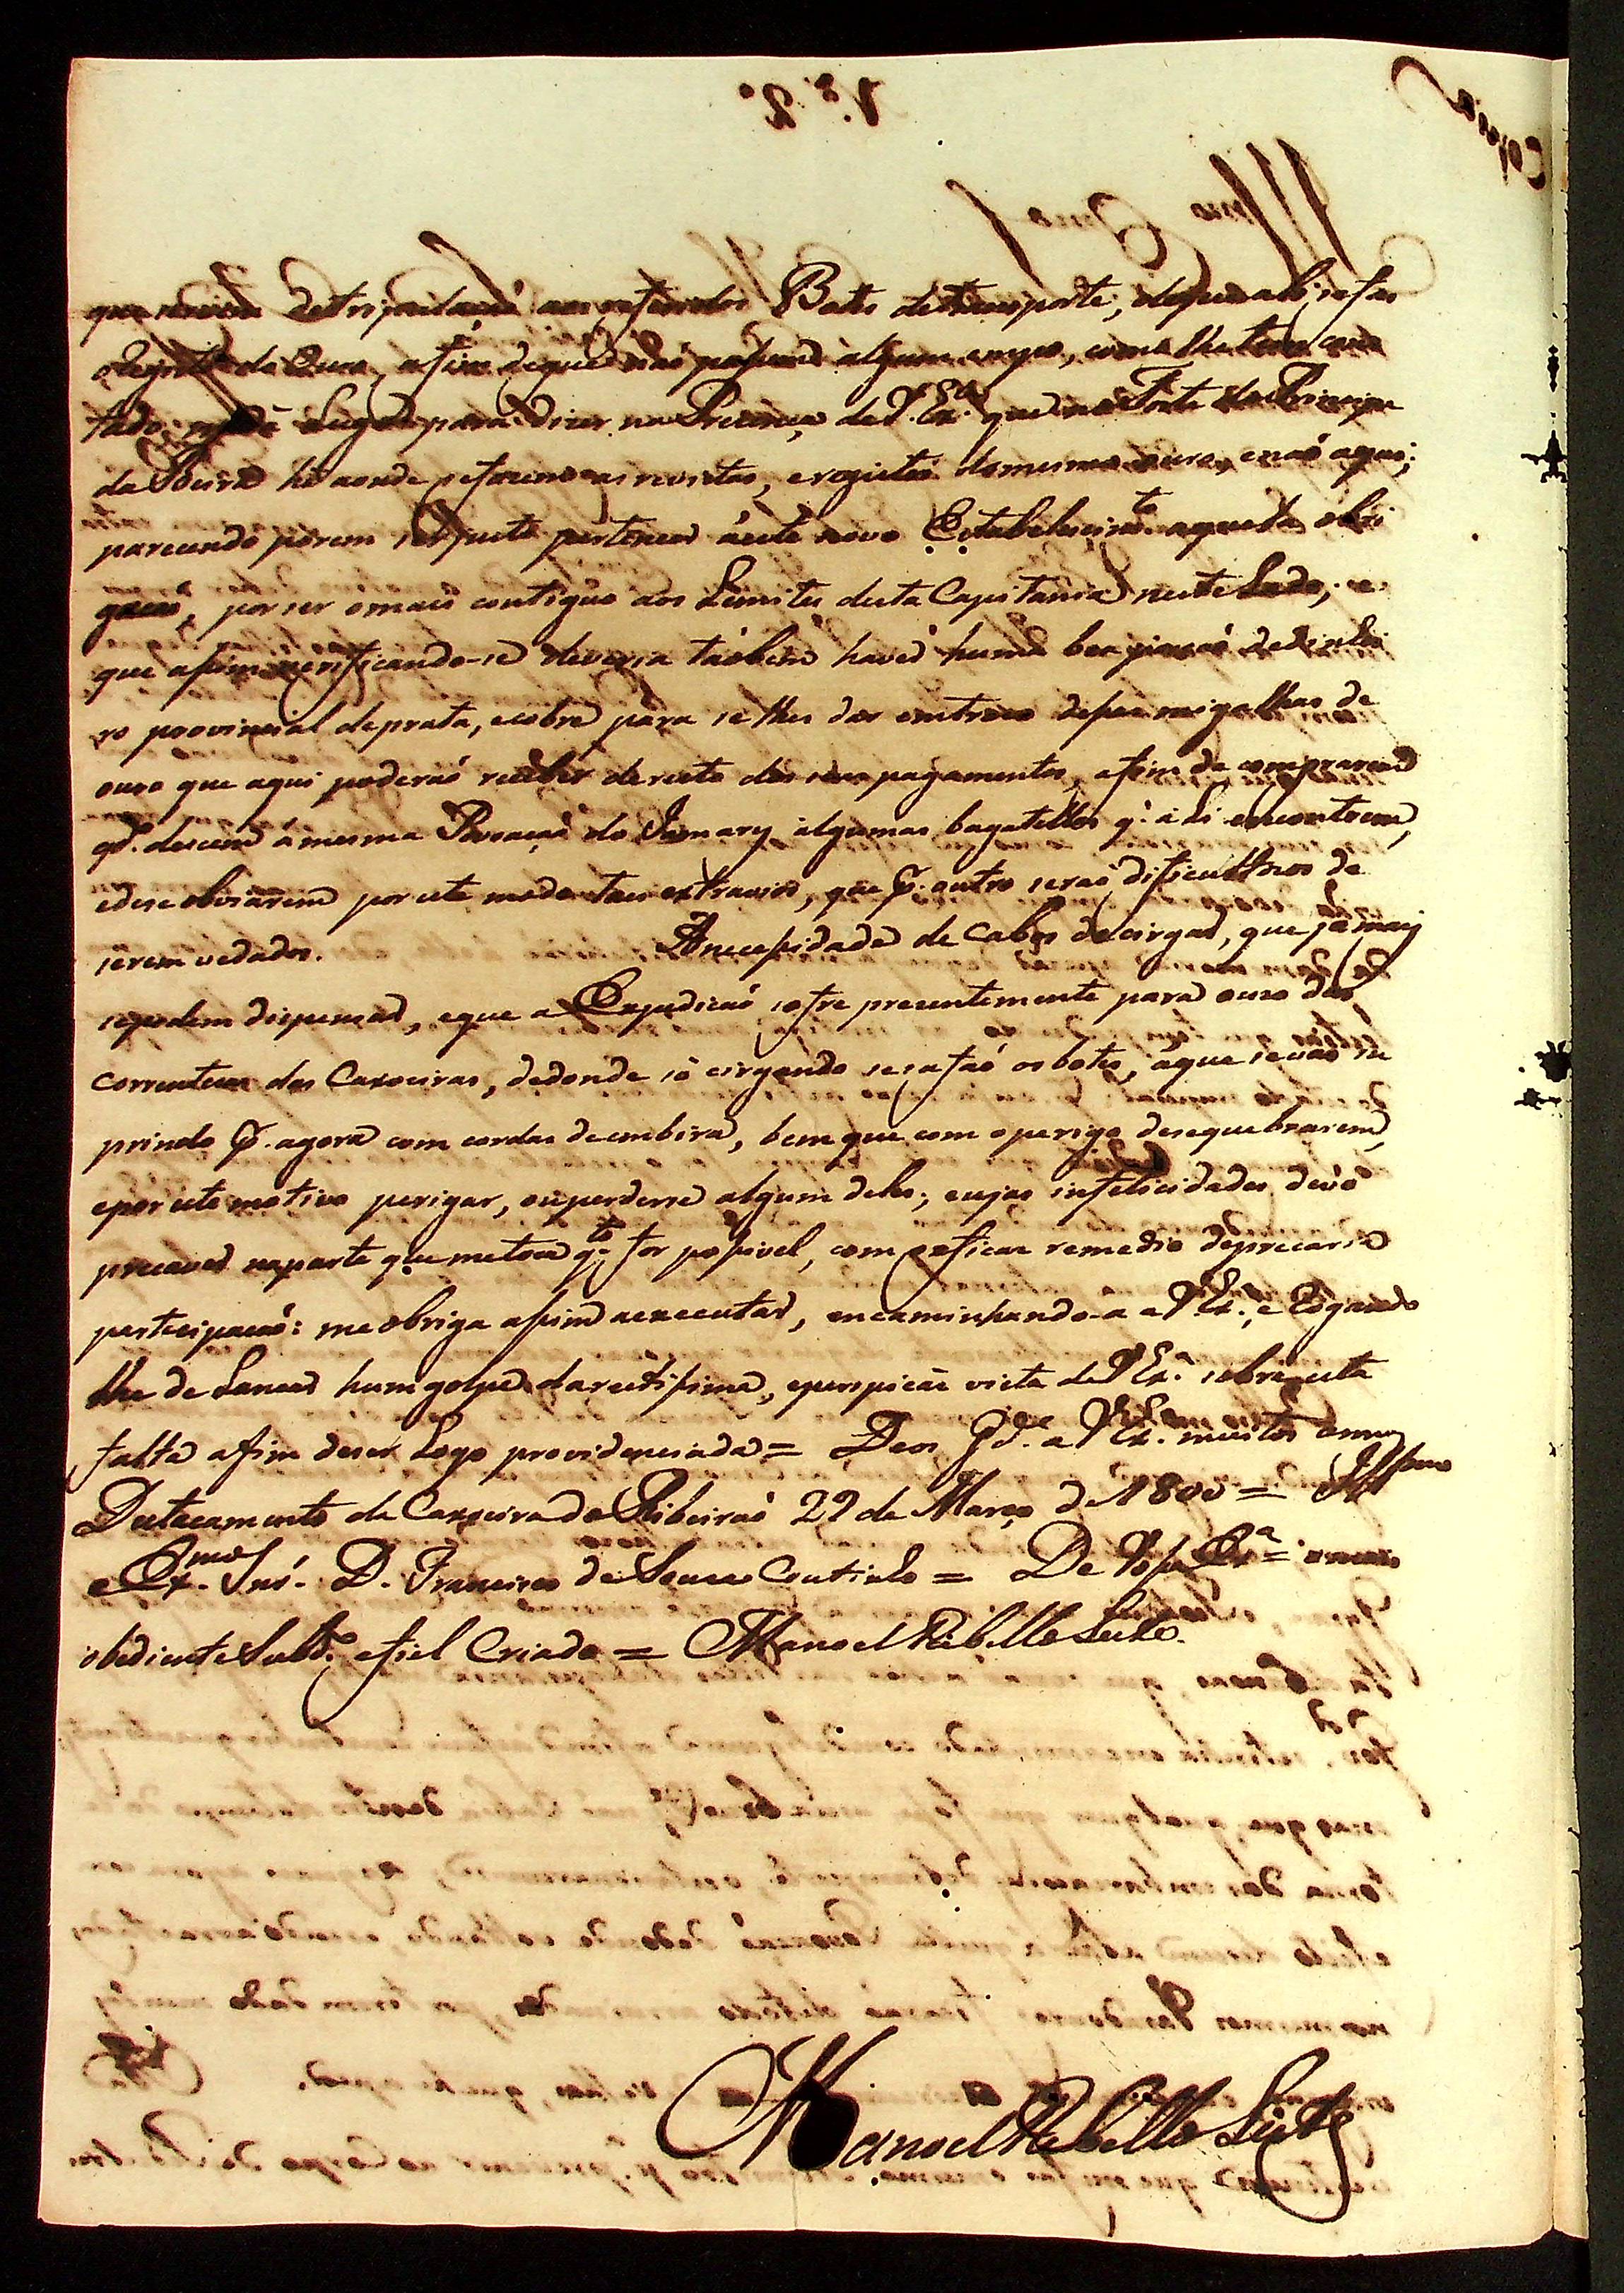 que servem de tripulaçaõ aos referidos Botes de transporte, de que ali se fas
o Registo do Ouro, afim de que naõ passem algum
tado, me dá Lugar para dizer na Prezença de V. Exª que no Forte do Principe
da Beira he aonde se fazem as revistas, e registos do mesmo ouro, e naõ aqui;
parecendo porem ser justo pertencer áeste novo Estabelecimto aquella obri
gacaõ, por ser o mais contiguo aos Limites desta Capitania neste Lado; e
que assim verificando-se deveria taõbem haver huma boa porcaõ de dinhei
ro provincial de prata, e cobre para se lhes dar em troco dessas migalhas de
ouro que aqui poderaõ receber de resto dos seus pagamentos, afim de comprarem
qd. descem á mesma Povoacaõ do Jamary algumas bagatellas q. ali encontrem,
e de se obviarem por este modo taes extravios, que p. outro seraõ dificultozos de
serem vedados. A necessidade de Cabos de cirgar, que já mais
se podem dispensar, e que a Expedicaõ sofre prezentemente para o uzo das
correntezas das Caxoeiras, de donde só cirgando se safaõ os botes, á que se vaõ su
prindo p. agora com cordas de embira, bem que com o perigo de se quebrarem,
e por este motivo perigar, ou perderse algum delles; cujas infelicidades devo
precaver na parte que me toca qto for possivel, com eficax remedio deprecaria
participacaõ: me obriga assim a executar, encaminhando-a a V. Exª, e Rogando
lhe de Lancar hum golpe da rectissima, e perspicás vista de V. Exª sobre esta
falta afim de ser Logo providenciada = Deos Gde a V. Exª muitos annos
Destacamento da Caxoeira do Ribeiraõ 22 de Março de 1800 = Illmo
e Exmo Snr. D. Francisco de Souza Coutinho = De Vossa Exª = o mais
obediente Subdo e fiel Criado = Manoel Rebello Leite.
Manoel Rebello Leite